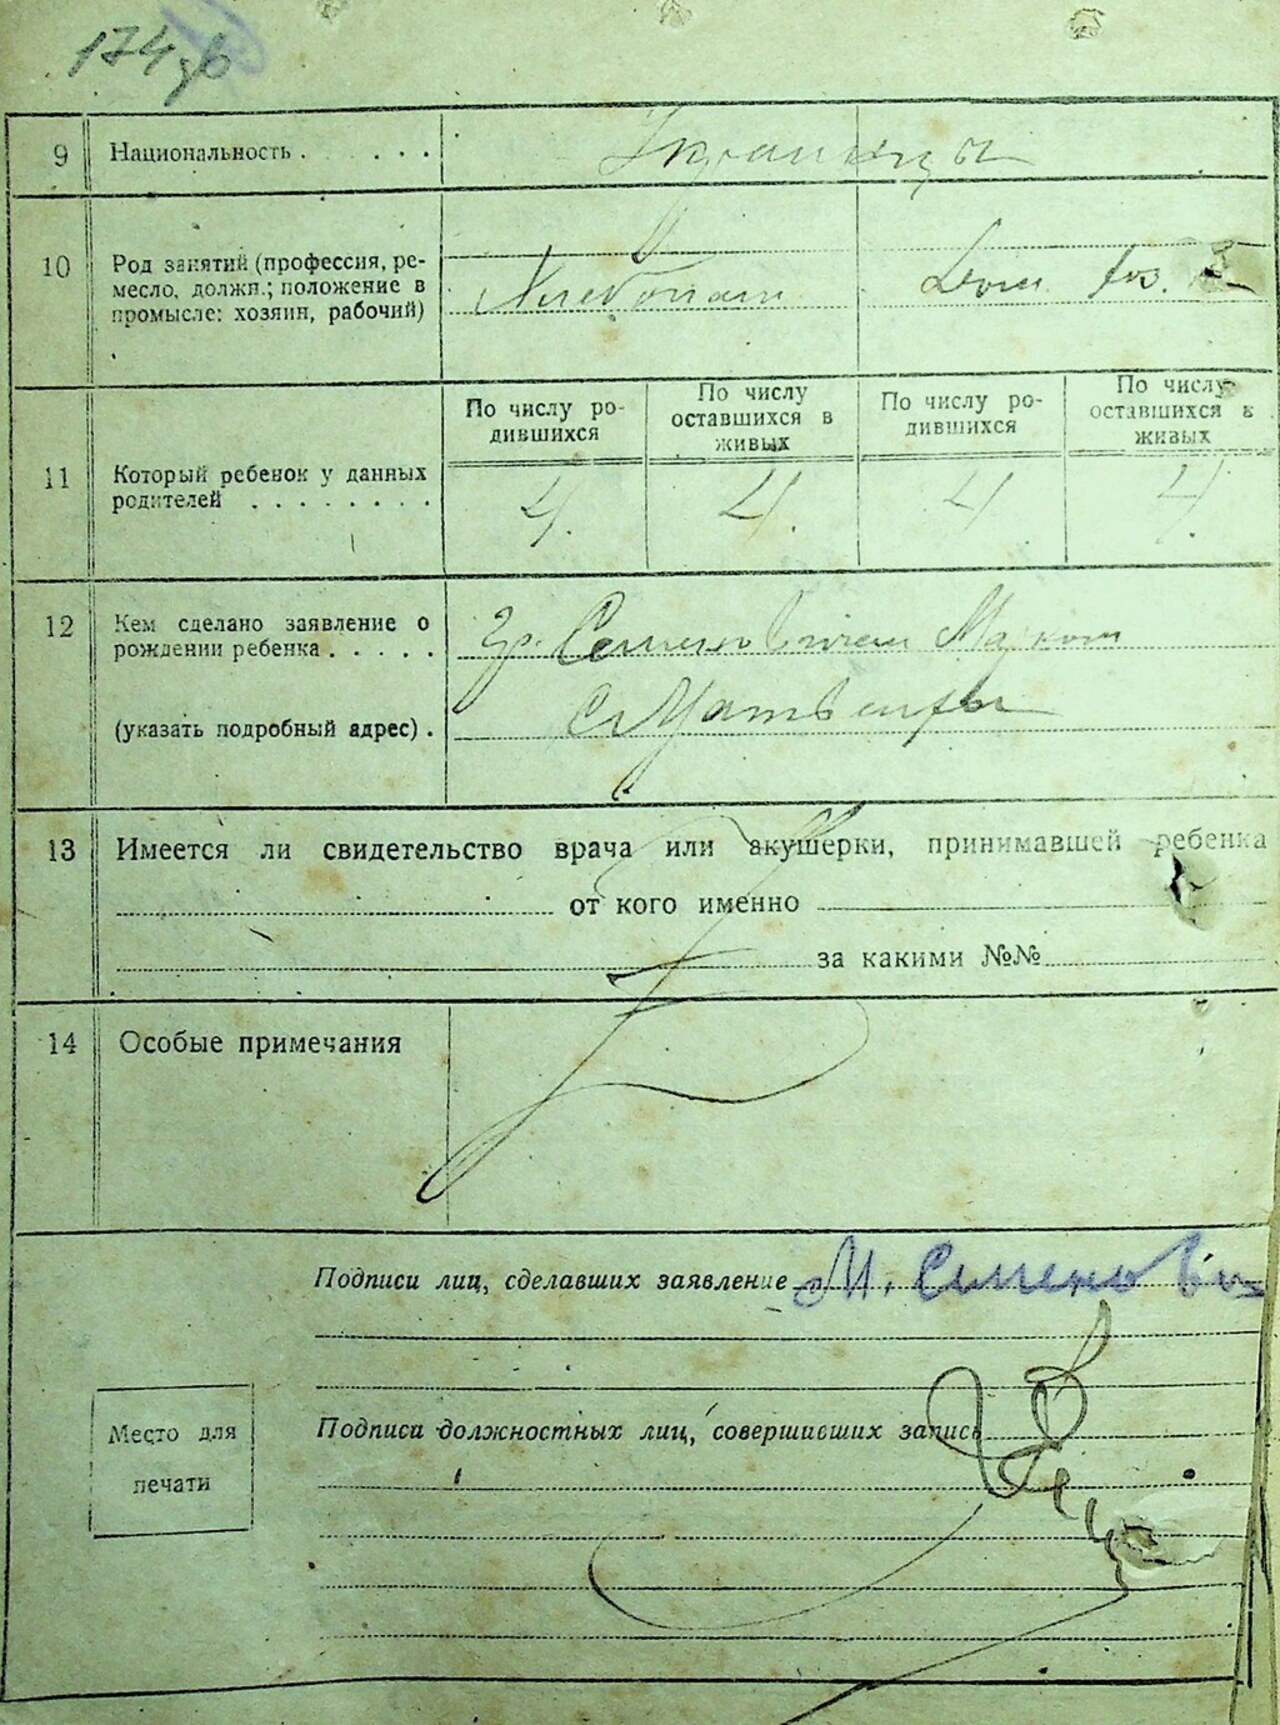 174 об
9 Национальность . . . . . Украинцы
10 Род занятий (профессия, ре-
месло, должн.; положение в
промысле: хозяин, рабочий)
Хлебопаш Дом хоз.
По числу ро-
дившихся
По числу
оставшихся в
живых
По числу ро-
дившихся
По числу
оставшихся в
живых
11 Который ребенок у данных
родителей . . . . . . . .
4. 4. 4 4.
12 Кем сделано заявление о
рождении ребенка . . . . .
гр. Семеновичем
(указать подробный адрес) .
с
13 Имеется ли свидетельство врача или акушерки, принимавшей ребенка
от кого именно
за какими №№
14 Особые примечания
Подписи лиц, сделавших заявление М. Семенович
Место для
печати
Подписи должностных лиц, совершивших запись